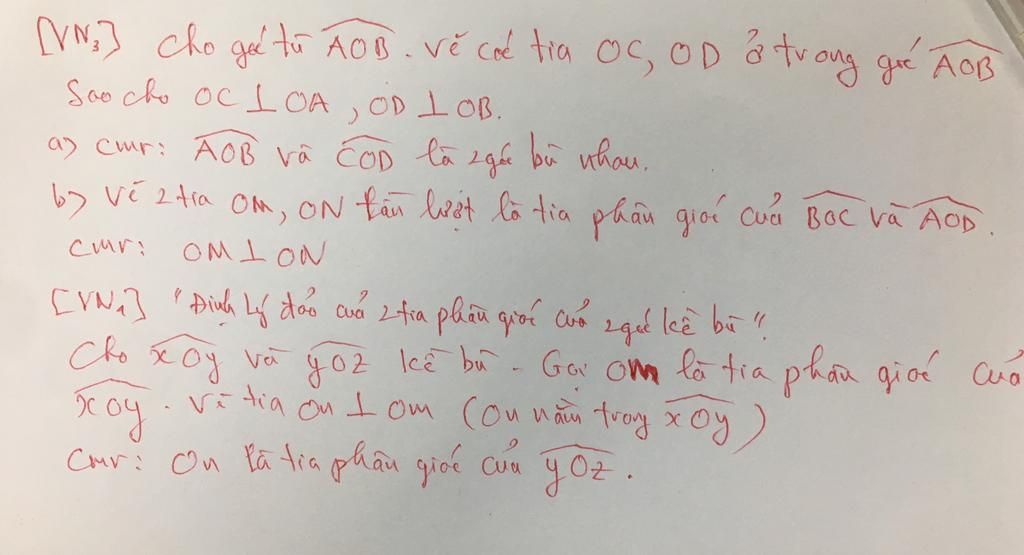 [VN3] Cho góc tù AOB. Vẽ các tia OC, OD ở trong góc AOB
Sao cho OC ⊥ OA, OD ⊥ OB.
a) cmr: AOB và COD là 2 góc bù nhau.
b) Vẽ 2 tia OM, ON lần lượt là tia phân giác của BOC và AOD.
cmr: OM ⊥ ON
[VN4] "Định lý đảo của 2 tia phân giác của 2 góc kề bù".
Cho xOy và yOz kề bù. Gọi Om là tia phân giác của
xOy. Vẽ tia On ⊥ Om (On nằm trong xOy)
cmr: On là tia phân giác của yOz.